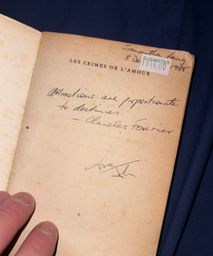 Samantha Lang
8 Dec 1988
LES CRIMES DE L'AMOUR
Attractions are proportionate
to destinies
– Charles Fourier
Love